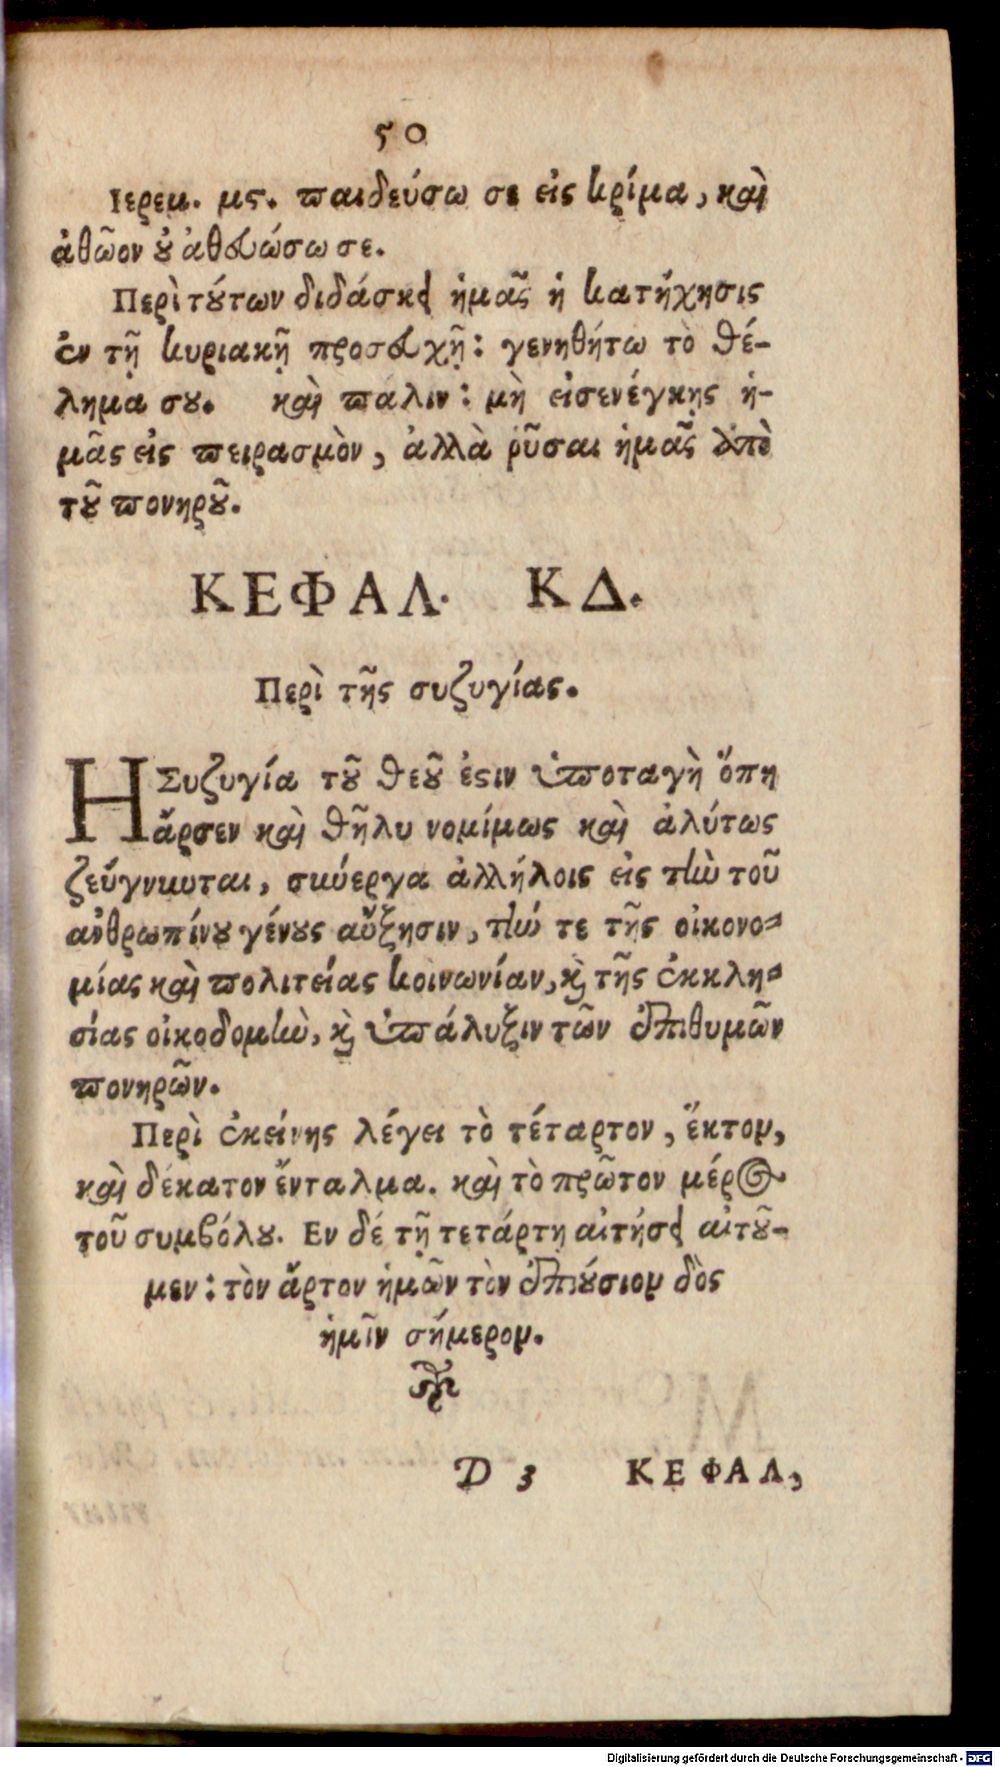 50
Ιερεμ. μς. παιδεύσω σε εἰς κρίμα, καὶ
ἀθῶον οὐ ἀθωώσω σε.
Περὶ τούτων διδάσκει ἡμᾶς ἡ κατήχησις
ἐν τῇ κυριακῇ προσευχῇ: γενηθήτω τὸ θέ-
λημα σου. καὶ πάλιν: μὴ εἰσενέγκης ἡ-
μᾶς εἰς πειρασμὸν, ἀλλὰ ῥῦσαι ἡμᾶς ἀπὸ
τοῦ πονηροῦ.
ΚΕΦΑΛ. ΚΔ.
Περὶ τῆς συζυγίας.
Η Συζυγία τοῦ θεοῦ ἐστιν ὑποταγὴ ὅπη
ἄρσεν καὶ θῆλυ νομίμως καὶ ἀλύτως
ζεύγνηυται, σηύεργα ἀλλήλοις εἰς τὴν τοῦ
ανθρωπίνου γένους αὔξησιν, τήν τε τῆς οἰκονο-
μίας καὶ πολιτείας κοινωνίαν, καὶ τῆς ἐκκλη-
σίας οἰκοδομὴν, καὶ ὑπάλυξιν τῶν ἐπιθυμῶν
πονηρῶν.
Περὶ ἐκείνης λέγει τὸ τέταρτον, ἕκτον,
καὶ δέκατον ἔνταλμα. καὶ τὸ πρῶτον μέρος
τοῦ συμβόλου. Εν δέ τῇ τετάρτη αἰτήσει αἰτοῦ-
μεν: τὸν ἄρτον ἡμῶν τὸν ἐπιούσιον δὸς
ἡμῖν σήμερον.
D 3 ΚΕΦΑΛ,
Digitalisierung gefördert durch die Deutsche Forschungsgemeinschaft - DFG